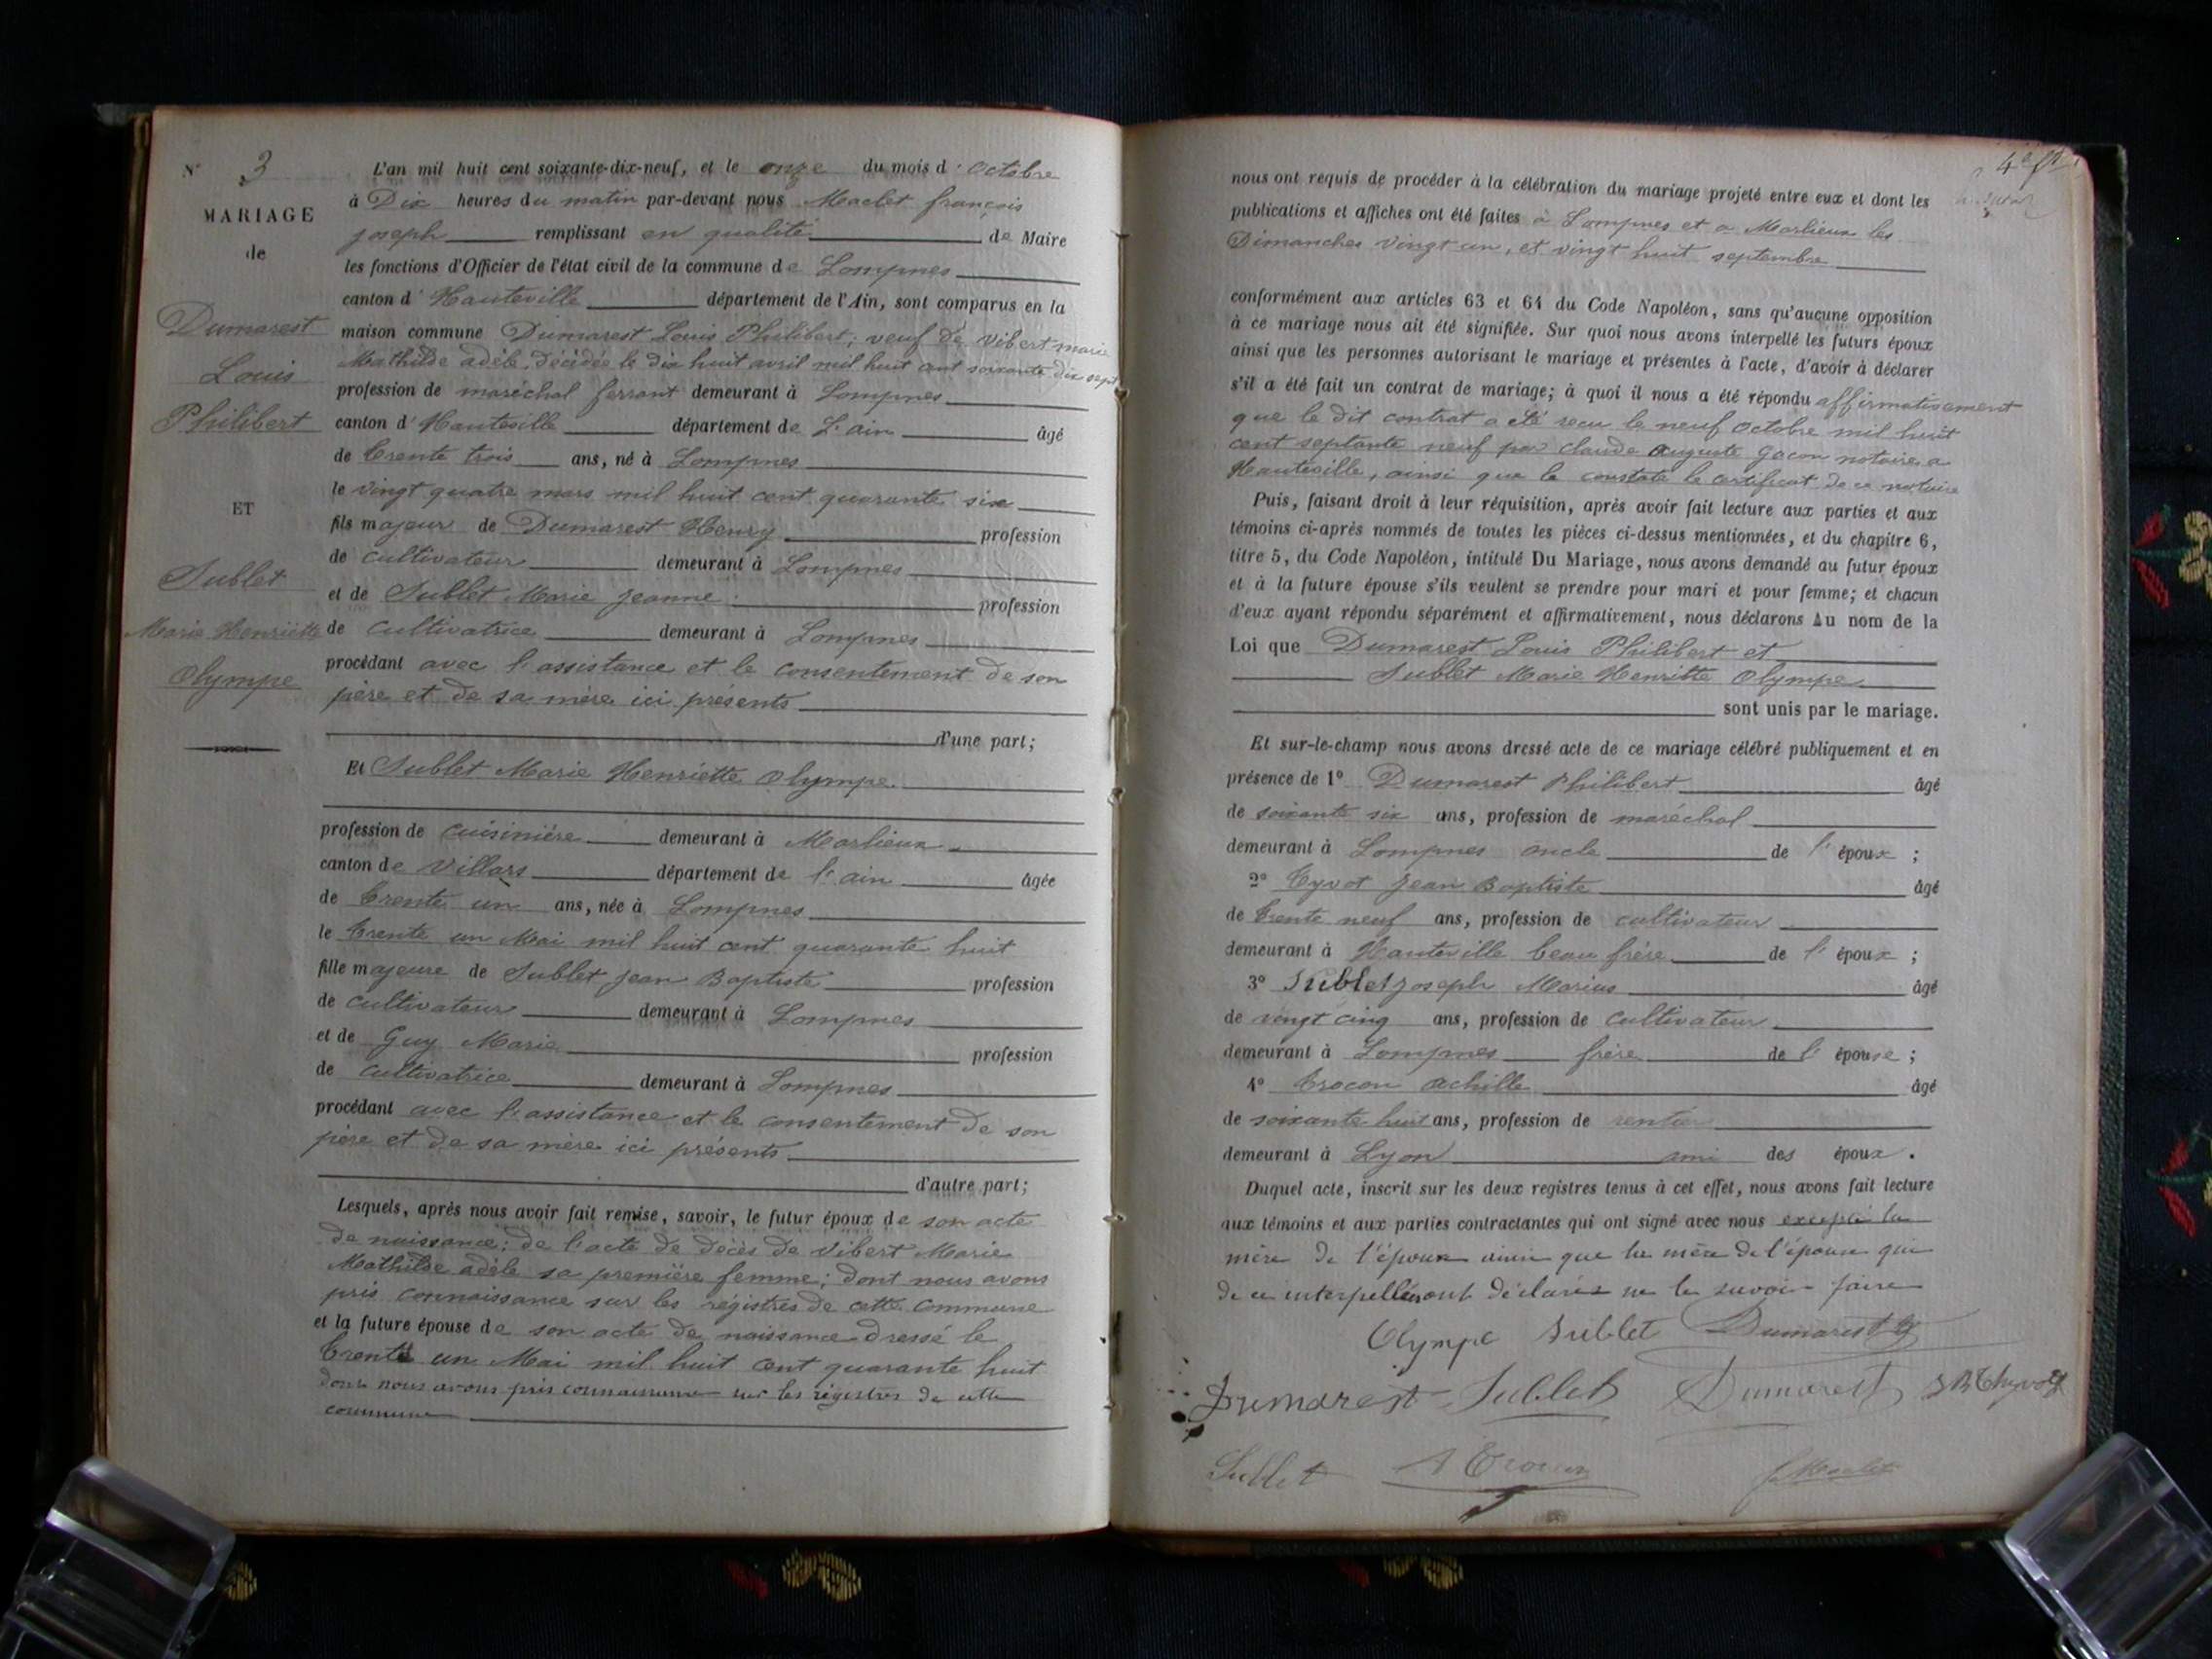 N° 3
MARIAGE
de
Dumarest
Louis
Philibert
ET
Sublet
Marie Henriette
Olympe
L'an mil huit cent soixante-dix-neuf, et le onze du mois d'Octobre
à Dix heures du matin par-devant nous Maclet françois
joseph remplissant en qualité de Maire
les fonctions d'Officier de l'état civil de la commune de Lompnes
canton d'Hauteville département de l'Ain, sont comparus en la
maison commune Dumarest Louis Philibert; veuf de Vibert marie
Mathilde adèle, décédée le dix huit avril mil huit cent soixante dix sept
profession de maréchal ferrant demeurant à Lompnes
canton d'Hauteville département de L'ain âgé
de trente trois ans, né à Lompnes
le vingt quatre mars mil huit cent quarante six
fils majeur de Dumarest Henry profession
de cultivateur demeurant à Lompnes
et de Sublet Marie Jeanne profession
de cultivatrice demeurant à Lompnes
procédant avec l'assistance et le consentement de son
père et de sa mère ici présents
d'une part;
Et Sublet Marie Henriette Olympe
profession de cuisinière demeurant à Marlieux
canton de Villars département de l'ain âgée
de trente un ans, née à Lompnes
le trente un Mai mil huit cent quarante huit
fille majeure de Sublet Jean Baptiste profession
de cultivateur demeurant à Lompnes
et de Guy Marie profession
de cultivatrice demeurant à Lompnes
procédant avec l'assistance et le consentement de son
père et de sa mère ici présents
d'autre part;
Lesquels, après nous avoir fait remise, savoir, le futur époux de son acte
de naissance; de l'acte de décès de Vibert Marie
Mathilde adèle sa première femme; dont nous avons
pris connaissance sur les régistres de cette commune
et la future épouse de son acte de naissance dressé le
trente un Mai mil huit cent quarante huit
dont nous avons pris connaissance sur les régistres de cette
commune
nous ont requis de procéder à la célébration du mariage projeté entre eux et dont les
publications et affiches ont été faites à Lompnes et a Marlieux les
Dimanches vingt un, et vingt huit septembre
conformément aux articles 63 et 64 du Code Napoléon, sans qu'aucune opposition
à ce mariage nous ait été signifiée. Sur quoi nous avons interpellé les futurs époux
ainsi que les personnes autorisant le mariage et présentes à l'acte, d'avoir à déclarer
s'il a été fait un contrat de mariage; à quoi il nous a été répondu affirmativement
que le dit contrat a été recu le neuf octobre mil huit
cent septante neuf par claude auguste Gacon notaire a
Hauteville, ainsi que le constate le certificat de ce notaire
Puis, faisant droit à leur réquisition, après avoir fait lecture aux parties et aux
témoins ci-après nommés de toutes les pièces ci-dessus mentionnées, et du chapitre 6,
titre 5, du Code Napoléon, intitulé Du Mariage, nous avons demandé au futur époux
et à la future épouse s'ils veulent se prendre pour mari et pour femme; et chacun
d'eux ayant répondu séparément et affirmativement, nous déclarons Au nom de la
Loi que Dumarest Louis Philibert et
Sublet Marie Henritte Olympe
sont unis par le mariage.
Et sur-le-champ nous avons dressé acte de ce mariage célébré publiquement et en
présence de 1° Dumarest Philibert âgé
de soixante six ans, profession de maréchal
demeurant à Lompnes oncle de l'époux ;
2° Tyvot Jean Baptiste âgé
de trente neuf ans, profession de cultivateur
demeurant à Hauteville beau frère de l'époux ;
3° Sublet joseph Marius âgé
de vingt cinq ans, profession de cultivateur
demeurant à Lompnes frère de l'épouse ;
4° Trocon achille âgé
de soixante huit ans, profession de rentier
demeurant à Lyon ami des époux .
Duquel acte, inscrit sur les deux registres tenus à cet effet, nous avons fait lecture
aux témoins et aux parties contractantes qui ont signé avec nous excepté la
mère de l'époux ainsi que la mère de l'épouse qui
de ce interpellées ont déclarés ne le savoir faire
Olympe Sublet Dumarest
Dumarest Sublet Dumarest
Sublet A Trocon Maclet